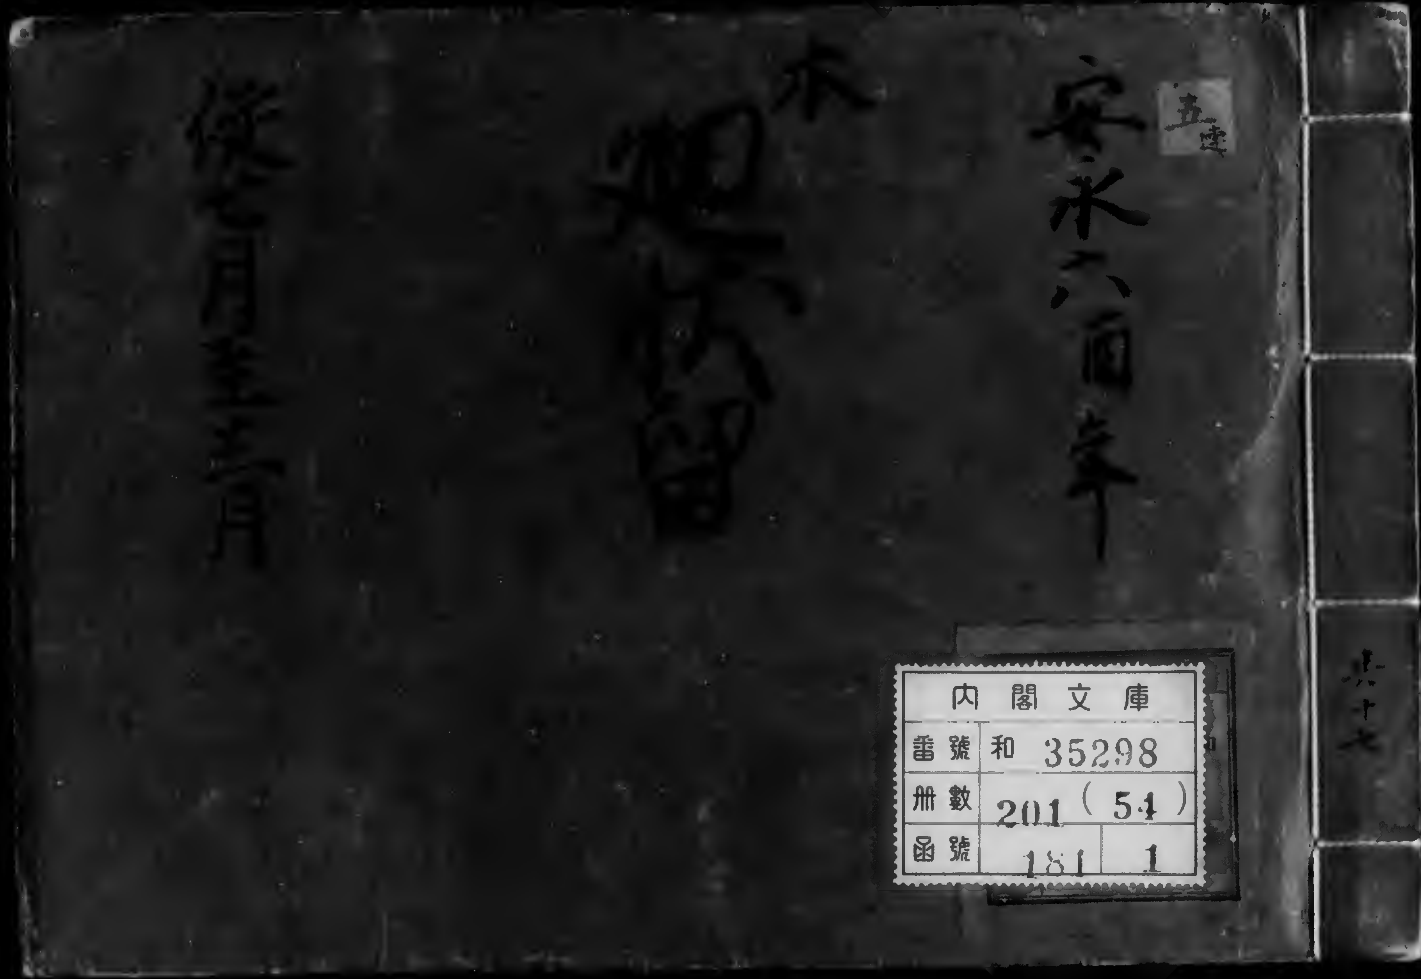 五
安永六酉年
留
從七月至十二月
共十七
内閣文庫
番號 和 35298
冊數 201 (54)
函號 181 1